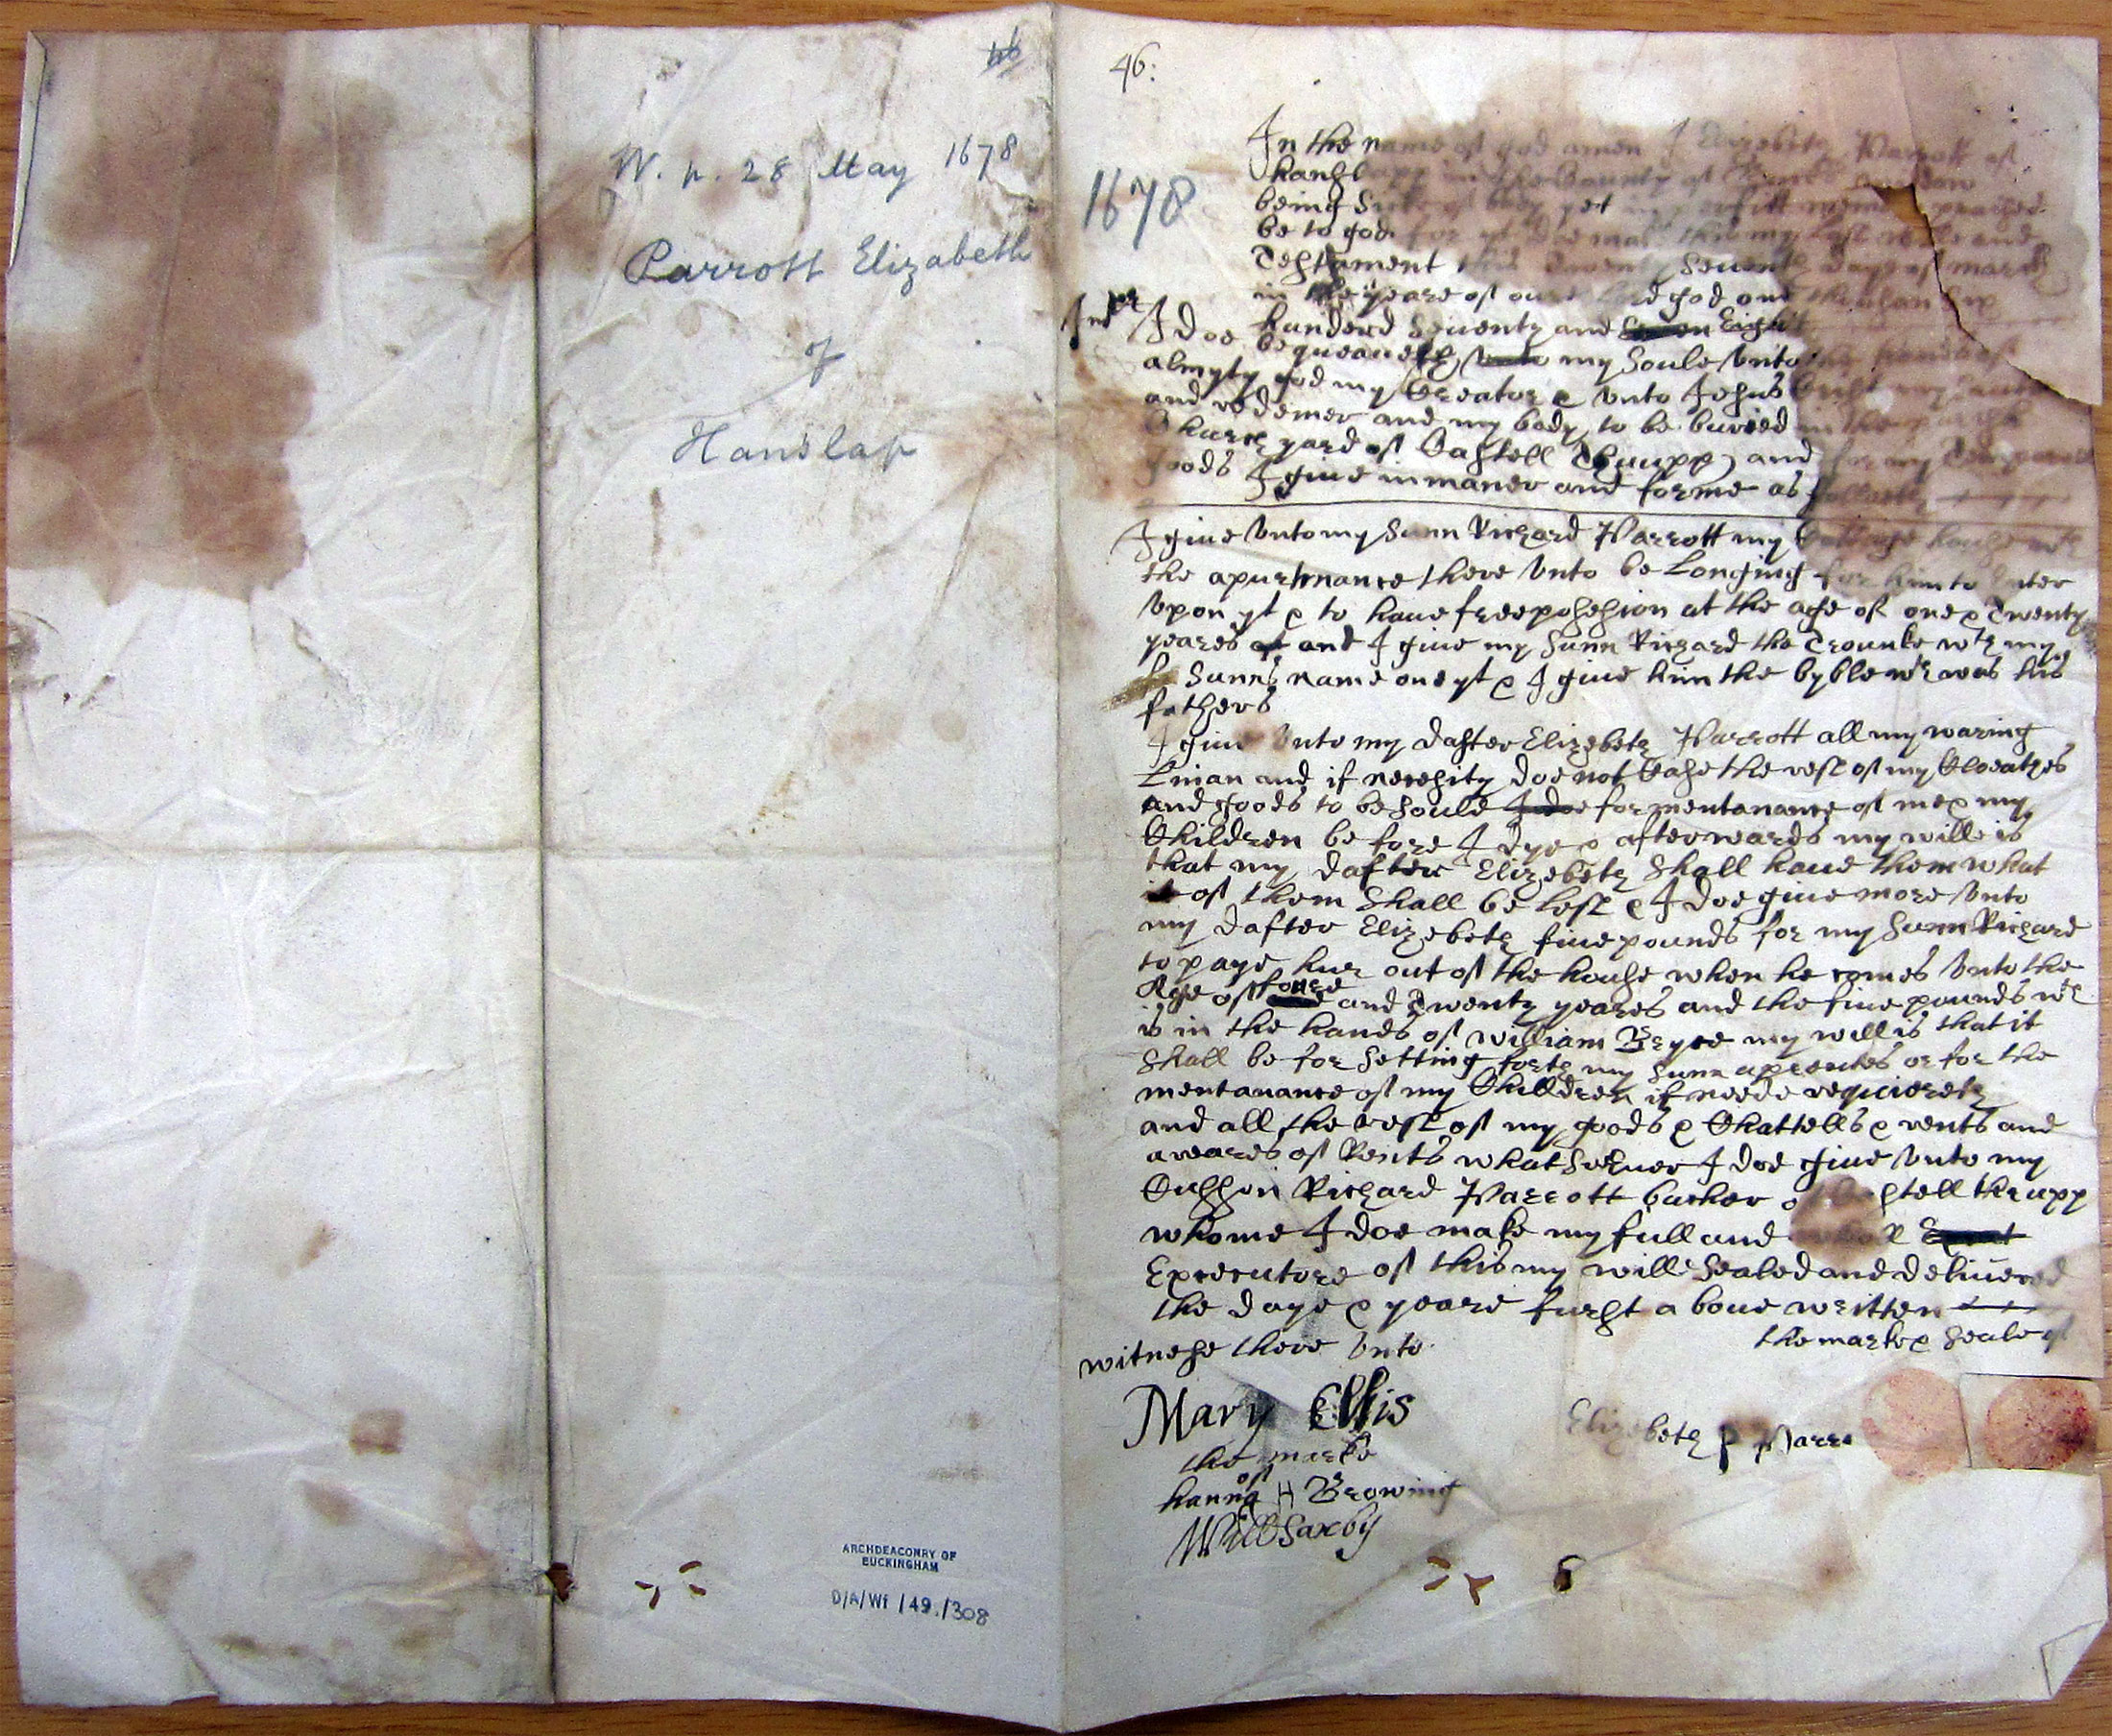 46
W. p. 28 May 1678
Parrott Elizabeth
of
Hanslap
ARCHDEACONRY OF
BUCKINGHAM
D/A/Wf /49./308
46:
1678
In the name of god amen I Elizebeth Parrott of
hanslapp in the County of widow
being Sicke of body yet in perfitt praised
be to god for yt doe mak this my last wille and
Testament this Twenty Seuenth daye of march
in the yeare of oure Lord god one thousan Six
hunderd Seuenty and Seuen Eight
Inpr I doe bequeaueth unto my Soule Unto the hands of
almyty god my Creator & Unto Jesus Crist my
and redemer and my body to be buried in the parish
Church yard of Castell Thrupp and for my
goods I giue in maner and forme as followeth
I giue Unto my Sunn Richard Parrott my Cottage house wth
the apurtinance there Unto be Longing for him to Enter
Upon yt & to haue free posession at the age of one & Twenty
yeares of and I giue my Sunn Richard the Trounke wth my
Sunns name one yt & I giue him the byble wch was his
fathers
I giue Unto my dafter Elizebeth Parrott all my waring
Linian and if necesity doe not Case the rest of my Cloeathes
and goods to be Sould I doe for mentanance of me & my
Children be fore I dye & afterwards my wille is
that my dafter Elizebeth Shall haue them what
of them Shall be left & I doe giue more Unto
my dafter Elizebeth fiue pounds for my Sunn Richard
to paye hur out of the house when he comes Unto the
Age of foure and Twenty yeares and the fiue pounds wch
is in the hands of william Bryce my will is that it
Shall be for Setting forth my Sunn aprentes or for the
mentanance of my Chilldren if neede requiereth
and all the rest of my goods & Chattells & rents and
areares of Rents whatSoeuer I doe giue Unto my
Cussen Richard Parrott bucher of Castell thrupp
whome I doe make my full and wholl
Excecutore of this my wille Sealed and deliuered
the daye & yeare furst a boue written
witnese there Unto the marke & Seale of
Mary Ellis
Elizebeth P Parro
the marke
of
hanna H Browing
Will Saxby